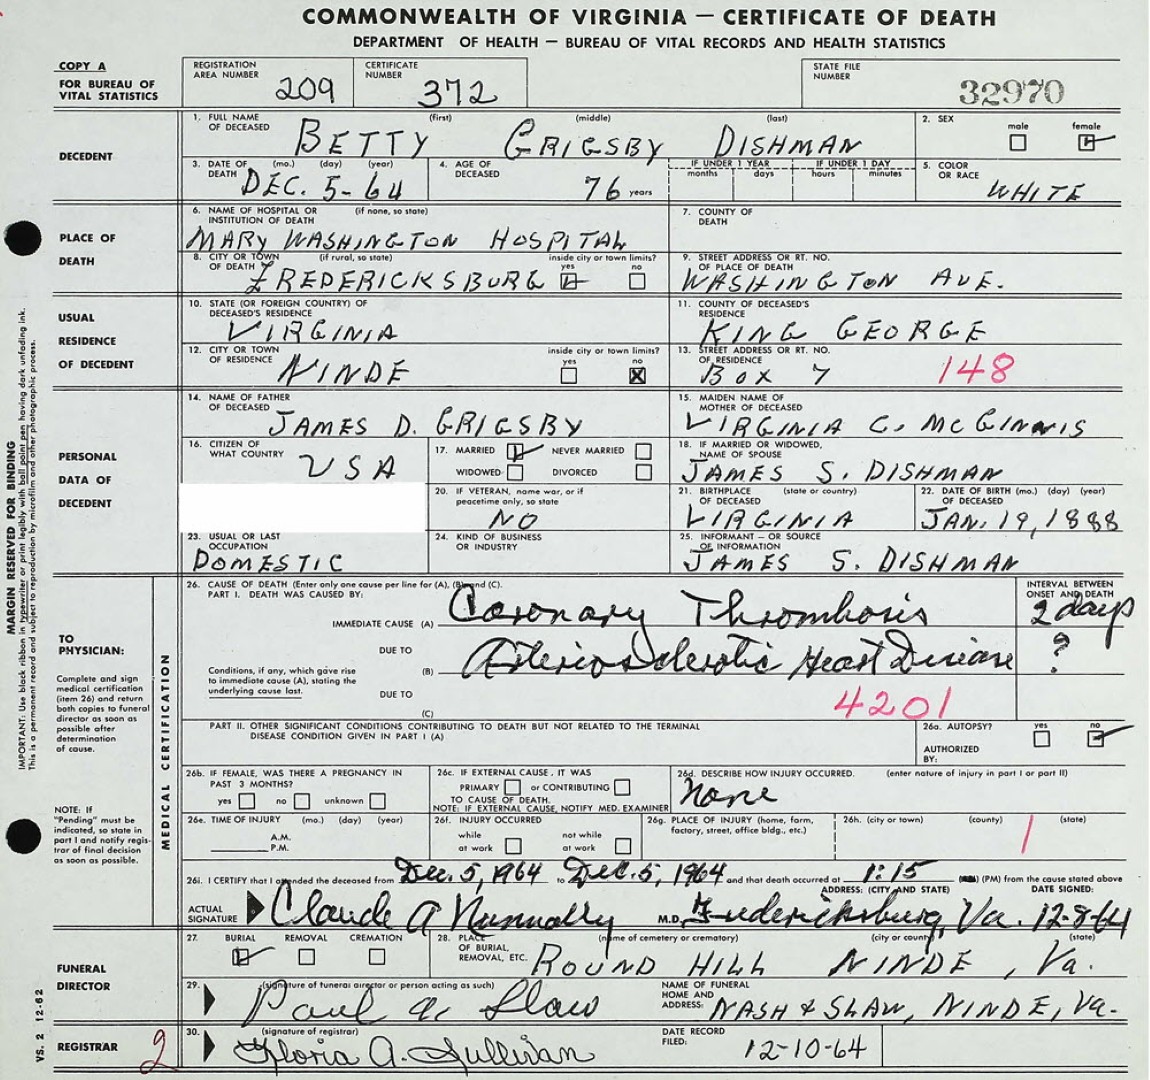 COMMONWEALTH OF VIRGINIA — CERTIFICATE OF DEATH
DEPARTMENT OF HEALTH — BUREAU OF VITAL RECORDS AND HEALTH STATISTICS
COPY A
FOR BUREAU OF VITAL STATISTICS
REGISTRATION AREA NUMBER 209
CERTIFICATE NUMBER 372
STATE FILE NUMBER 32970
DECEDENT
1. FULL NAME OF DECEASED (first) (middle) (last)
BETTY GRIGSBY DISHMAN
2. SEX male female
3. DATE OF DEATH (mo.) (day) (year) DEC. 5-64
4. AGE OF DECEASED 76 years
IF UNDER 1 YEAR months days
IF UNDER 1 DAY hours minutes
5. COLOR OR RACE WHITE
PLACE OF DEATH
6. NAME OF HOSPITAL OR INSTITUTION OF DEATH (if none, so state)
MARY WASHINGTON HOSPITAL
7. COUNTY OF DEATH
8. CITY OR TOWN OF DEATH (if rural, so state) inside city or town limits? yes no
FREDERICKSBURG
9. STREET ADDRESS OR RT. NO. OF PLACE OF DEATH
WASHINGTON AVE.
USUAL RESIDENCE OF DECEDENT
10. STATE (OR FOREIGN COUNTRY) OF DECEASED'S RESIDENCE
VIRGINIA
11. COUNTY OF DECEASED'S RESIDENCE
KING GEORGE
12. CITY OR TOWN OF RESIDENCE inside city or town limits? yes no
NINDE
13. STREET ADDRESS OR RT. NO. OF RESIDENCE
BOX 7 148
PERSONAL DATA OF DECEDENT
14. NAME OF FATHER OF DECEASED
JAMES D. GRIGSBY
15. MAIDEN NAME OF MOTHER OF DECEASED
VIRGINIA C. MCGINNIS
16. CITIZEN OF WHAT COUNTRY USA
17. MARRIED NEVER MARRIED
WIDOWED DIVORCED
18. IF MARRIED OR WIDOWED, NAME OF SPOUSE
JAMES S. DISHMAN
20. IF VETERAN, name war, or if peacetime only, so state
NO
21. BIRTHPLACE OF DECEASED (state or country)
VIRGINIA
22. DATE OF BIRTH (mo.) (day) (year) OF DECEASED
JAN. 19, 1888
23. USUAL OR LAST OCCUPATION
DOMESTIC
24. KIND OF BUSINESS OR INDUSTRY
25. INFORMANT — OR SOURCE OF INFORMATION
JAMES S. DISHMAN
MARGIN RESERVED FOR BINDING
IMPORTANT: Use black ribbon in typewriter or print legibly with ball point pen having dark unfading ink.
This is a permanent record and subject to reproduction by microfilm and other photographic process.
TO PHYSICIAN:
Complete and sign medical certification (item 26) and return both copies to funeral director as soon as possible after determination of cause.
NOTE: IF "Pending" must be indicated, so state in part I and notify registrar of final decision as soon as possible.
MEDICAL CERTIFICATION
26. CAUSE OF DEATH (Enter only one cause per line for (A), (B) and (C).
PART I. DEATH WAS CAUSED BY:
INTERVAL BETWEEN ONSET AND DEATH
IMMEDIATE CAUSE (A) Coronary Thrombosis 2 days
DUE TO
Conditions, if any, which gave rise to immediate cause (A), stating the underlying cause last.
(B) Arteriosclerotic Heart Disease ?
DUE TO
(C) 4201
PART II. OTHER SIGNIFICANT CONDITIONS CONTRIBUTING TO DEATH BUT NOT RELATED TO THE TERMINAL DISEASE CONDITION GIVEN IN PART I (A)
26a. AUTOPSY? yes no
AUTHORIZED BY:
26b. IF FEMALE, WAS THERE A PREGNANCY IN PAST 3 MONTHS?
yes no unknown
26c. IF EXTERNAL CAUSE, IT WAS
PRIMARY or CONTRIBUTING
TO CAUSE OF DEATH.
NOTE: IF EXTERNAL CAUSE, NOTIFY MED. EXAMINER
26d. DESCRIBE HOW INJURY OCCURRED. (enter nature of injury in part I or part II)
None
26e. TIME OF INJURY (mo.) (day) (year)
A.M.
P.M.
26f. INJURY OCCURRED
while at work not while at work
26g. PLACE OF INJURY (home, farm, factory, street, office bldg., etc.)
26h. (city or town) (county) (state)
1
26i. I CERTIFY that I attended the deceased from Dec. 5, 1964 to Dec. 5, 1964 and that death occurred at 1:15 (PM) from the cause stated above
ADDRESS: (CITY AND STATE) DATE SIGNED:
ACTUAL SIGNATURE Claude A Nunnally M.D. Fredericksburg, Va. 12-8-64
FUNERAL DIRECTOR
27. BURIAL REMOVAL CREMATION
28. PLACE OF BURIAL, REMOVAL, ETC. (name of cemetery or crematory) (city or county) (state)
ROUND HILL NINDE, Va.
29. (signature of funeral director or person acting as such)
Paul A. Slaw
NAME OF FUNERAL HOME AND ADDRESS: NASH & SLAW, NINDE, Va.
REGISTRAR 2
30. (signature of registrar)
Gloria A. Sullivan
DATE RECORD FILED: 12-10-64
VS. 2 12-62